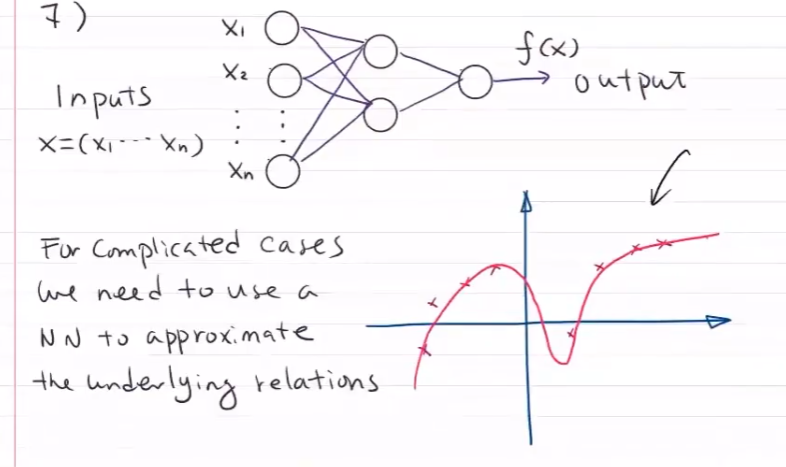 7)
x₁
x₂
⋮ ⋮
xₙ
f(x)
output
Inputs
x=(x₁···xₙ)
For complicated cases
we need to use a
NN to approximate
the underlying relations